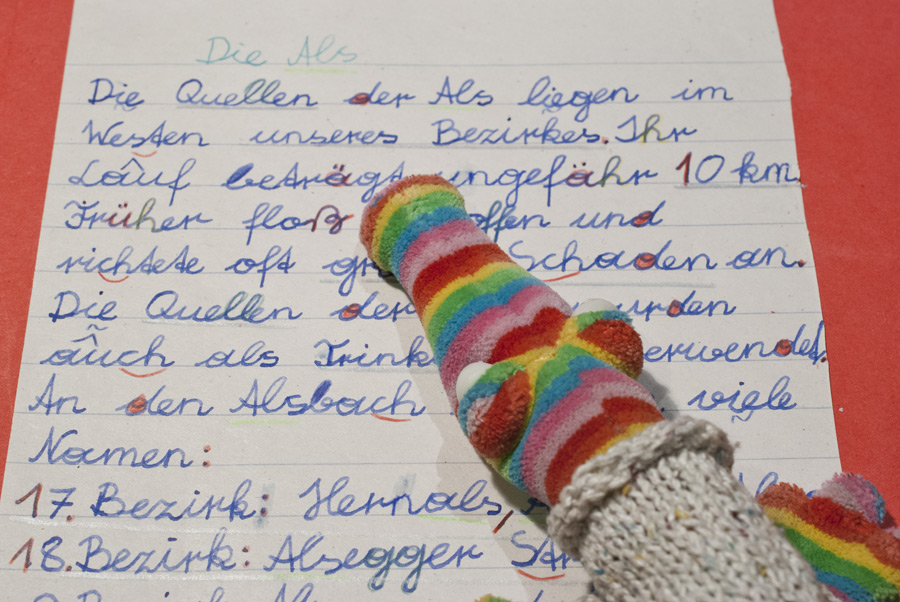 Die Als
Die Quellen der Als liegen im
Westen unseres Bezirkes. Ihr
Lauf beträgt ungefähr 10 km.
Früher floß und
richtete oft Schaden an.
Die Quellen der
auch als
An den Alsbach viele
Namen:
17. Bezirk: Hernals,
18. Bezirk: Alsegger